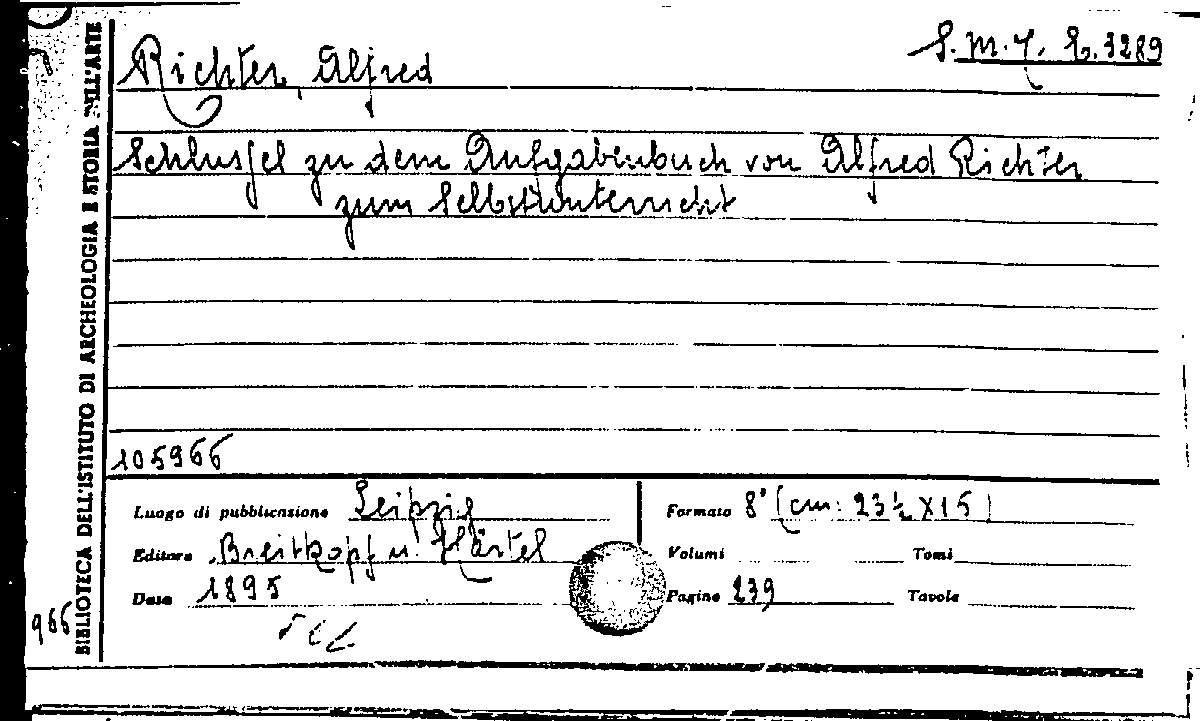 BIBLIOTECA DELL'ISTITUTO DI ARCHEOLOGIA E STORIA DELL'ARTE
Richter, Alfred
Schlussel zu dem Aufgabenbuch von Alfred Richter
zum Selbstunterricht
105966
Luogo di pubblicazione Leipzig
Formato 8° (cm: 23½ X 15)
Editore Breitkopf u. Härtel
Volumi Tomi
Data 1895
Pagine 239 Tavole
966